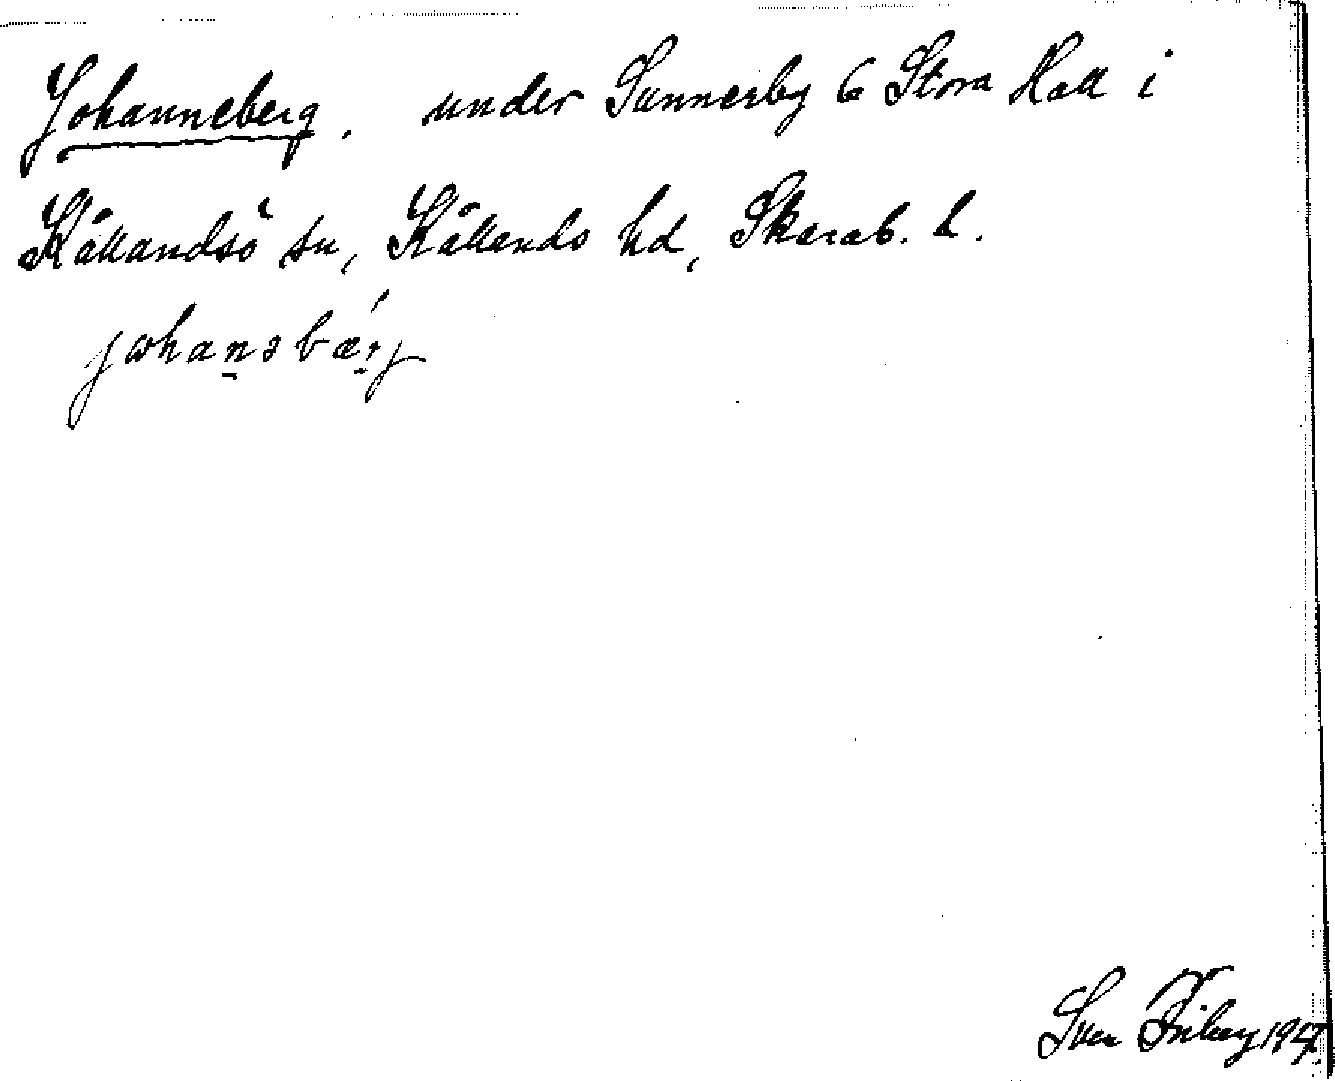 Johanneberg. under Sunnerby 6 Stora Hall i
Kållandsö sn, Kållands hd, Skarab. l.
johanəbærj
Sven Friberg 1947.